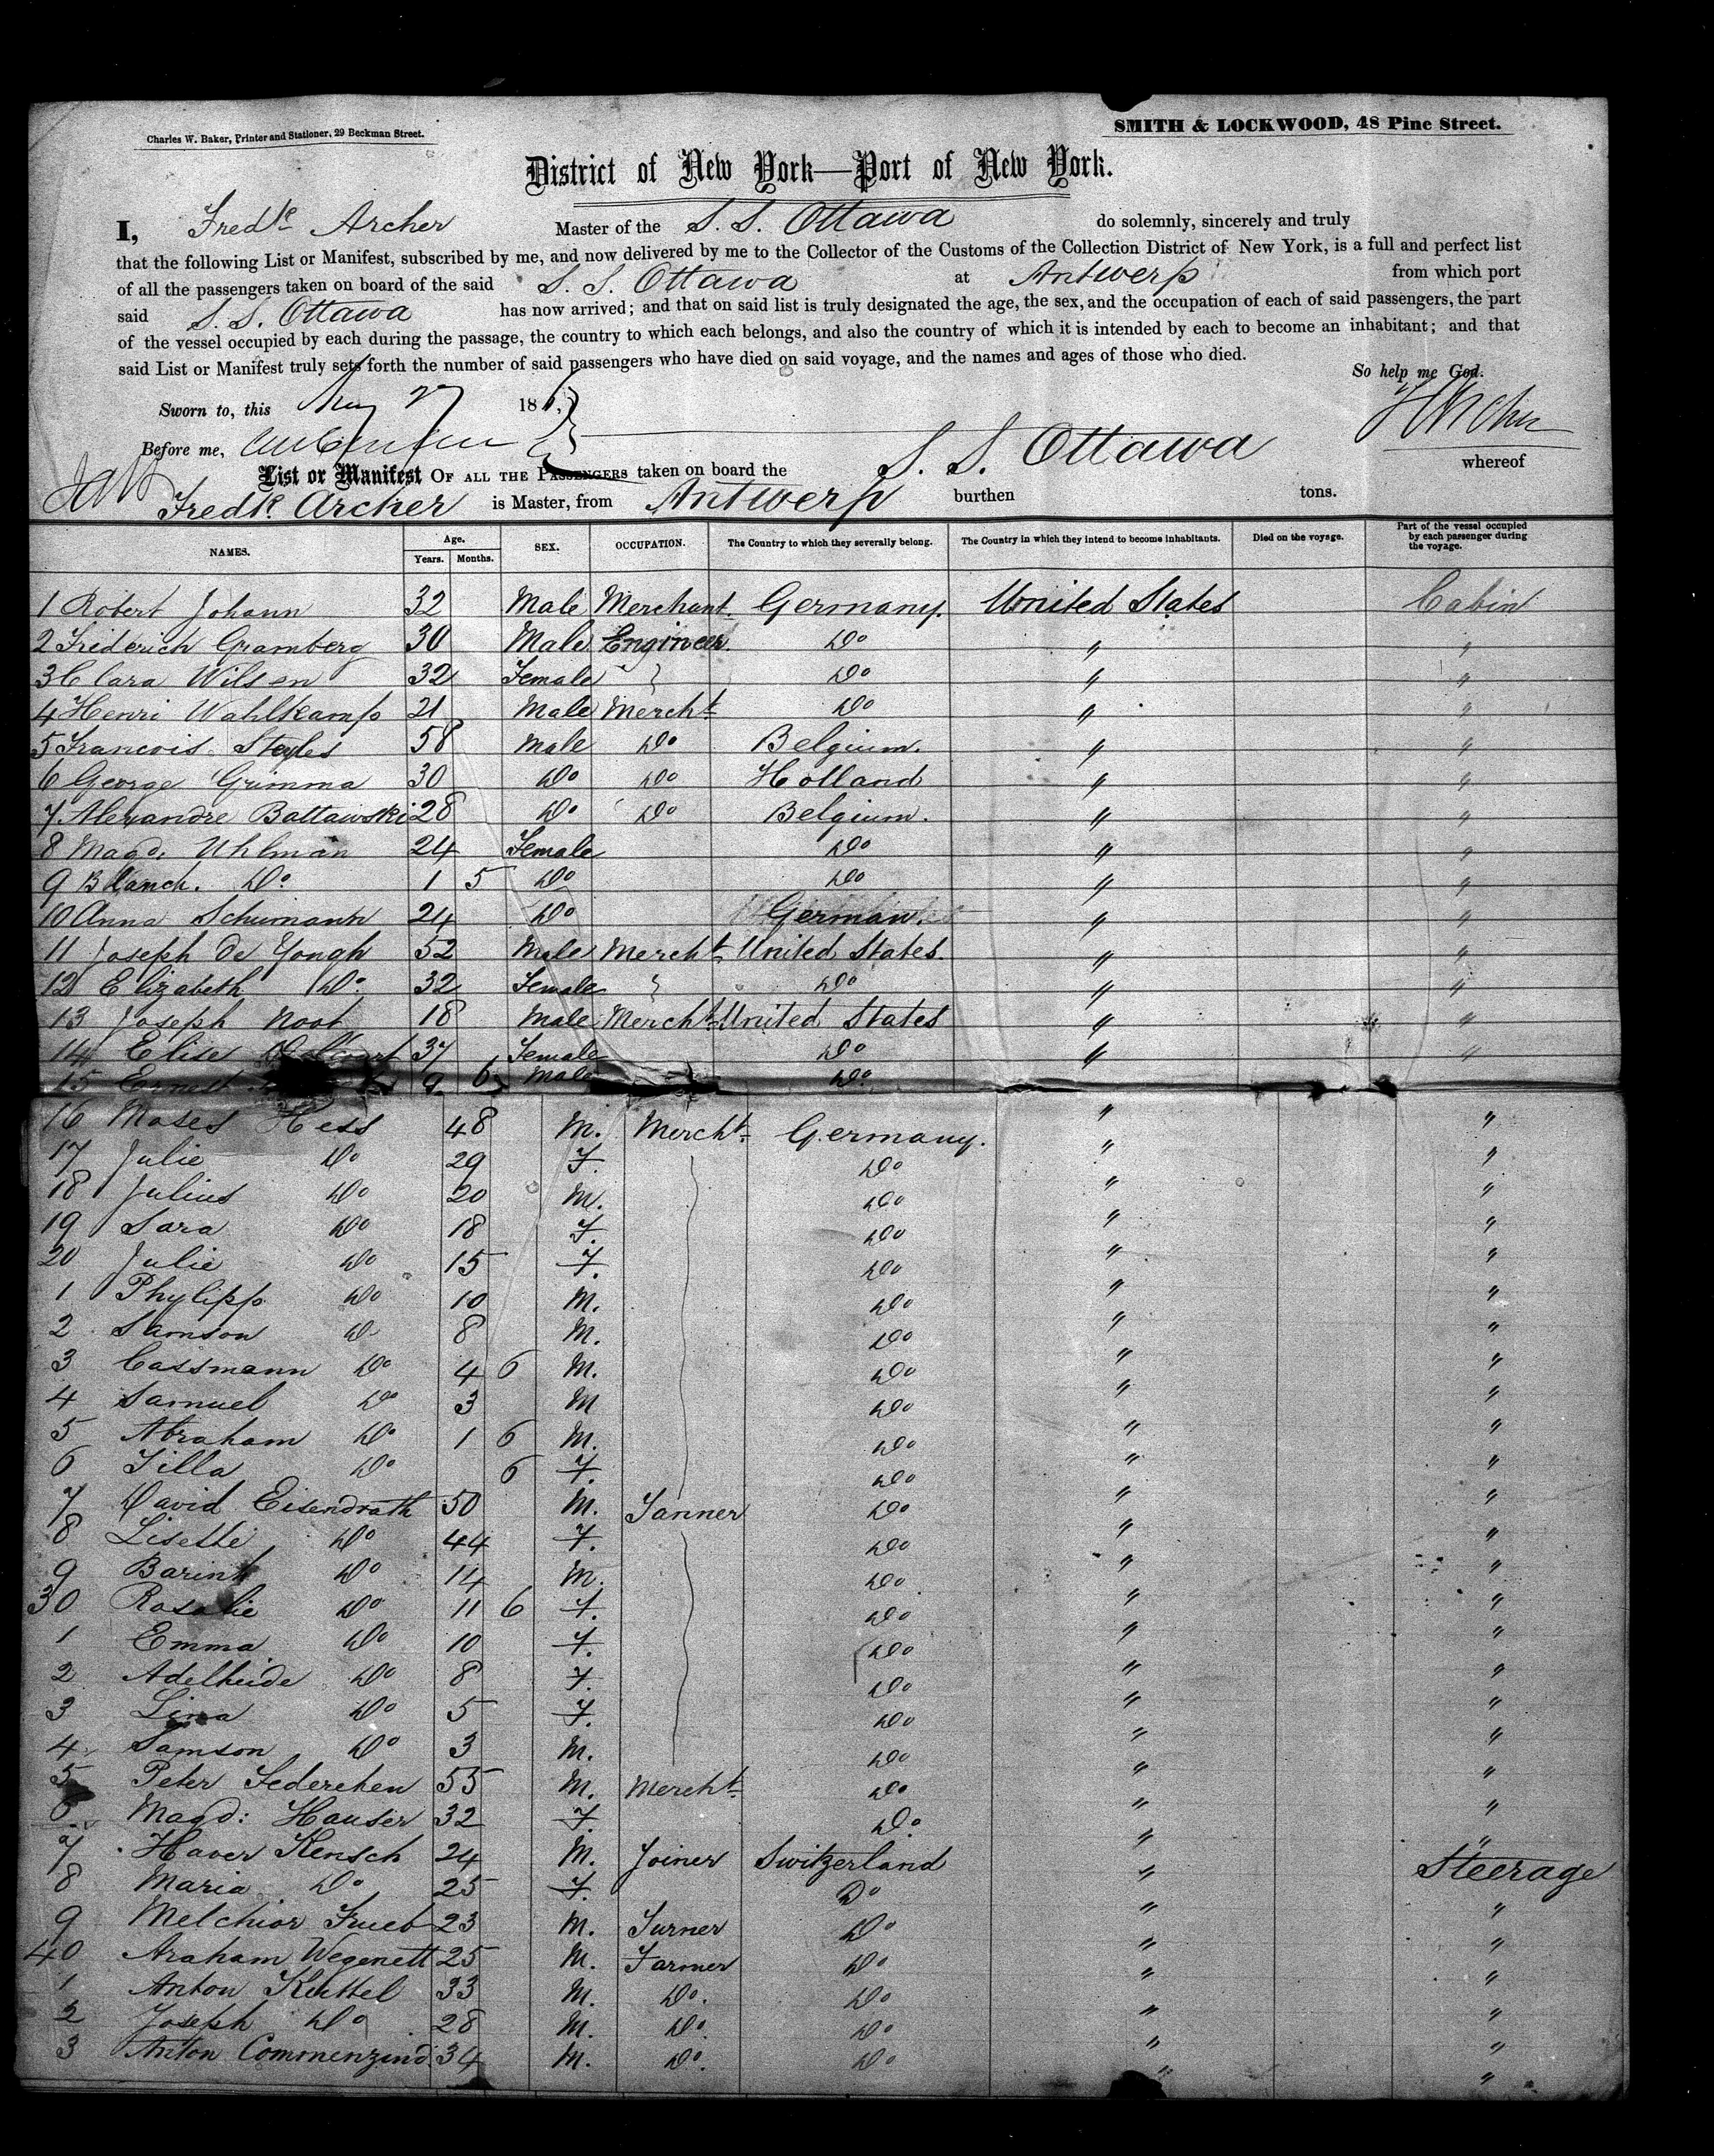 Charles W. Baker, Printer and Stationer, 29 Beekman Street.
SMITH & LOCKWOOD, 48 Pine Street.
District of New York—Port of New York.
I, Fredk Archer Master of the S. S. Ottawa do solemnly, sincerely and truly
that the following List or Manifest, subscribed by me, and now delivered by me to the Collector of the Customs of the Collection District of New York, is a full and perfect list
of all the passengers taken on board of the said S. S. Ottawa at Antwerp from which port
said S. S. Ottawa has now arrived; and that on said list is truly designated the age, the sex, and the occupation of each of said passengers, the part
of the vessel occupied by each during the passage, the country to which each belongs, and also the country of which it is intended by each to become an inhabitant; and that
said List or Manifest truly sets forth the number of said passengers who have died on said voyage, and the names and ages of those who died.
So help me God.
Sworn to, this 27 186
Before me,
List or Manifest OF ALL THE PASSENGERS taken on board the S. S. Ottawa whereof
Fredk. Archer is Master, from Antwerp burthen tons.
NAMES. Age. Years. Months. SEX. OCCUPATION. The Country to which they severally belong. The Country in which they intend to become inhabitants. Died on the voyage. Part of the vessel occupied by each passenger during the voyage.
1 Robert Johann 32 Male Merchant Germany. United States Cabin
2 Friderich Gramberg 30 Male Engineer. Do " "
3 Clara Wilsen 32 Female Do " "
4 Henri Wahlkamp 21 Male Mercht Do " "
5 Francois Steyles 58 Male Do Belgium. " "
6 George Grimma 30 Do Do Holland " "
7 Alexandre Battawski 28 Do Do Belgium. " "
8 Magd: Uhlman 24 Female Do " "
9 Blanch. Do 1 5 Do Do " "
10 Anna Schumann 24 Do German. " "
11 Joseph de Yongh 52 Male Mercht United States. " "
12 Elizabeth Do 32 Female Do " "
13 Joseph Noot 18 Male Mercht United States " "
14 Elise 37 Female Do " "
15 Earnest 9 6 Male Do
16 Moses Hess 48 M. Mercht Germany. " "
17 Julie Do 29 F. Do " "
18 Julius Do 20 M. Do " "
19 Sara Do 18 F. Do " "
20 Julie Do 15 F. Do " "
1 Phylipp Do 10 M. Do " "
2 Samson Do 8 M. Do " "
3 Cassmann Do 4 6 M. Do " "
4 Samuel Do 3 M Do " "
5 Abraham Do 1 6 M. Do " "
6 Tilla Do 6 F. Do " "
7 David Eisendrath 50 M. Tanner Do " "
8 Lisette Do 44 F. Do " "
9 Barint Do 14 M. Do " "
30 Rosalie Do 11 6 F. Do " "
1 Emma Do 10 F. Do " "
2 Adelheide Do 8 F. Do " "
3 Lina Do 5 F. Do " "
4 Samson Do 3 M. Do " "
5 Peter Sederehen 55 M. Mercht Do " "
6 Magd: Hauser 32 F. Do " "
7 Haver Kensch 24 M. Joiner Switzerland " Steerage
8 Maria Do 25 F. Do " "
9 Melchior Frueb 23 M. Turner Do " "
40 Araham Wegenett 25 M. Farmer Do " "
1 Anton Kuttel 33 M. Do. Do " "
2 Joseph Do 28 M. Do. Do " "
3 Anton Commenzind 34 M. Do. Do " "